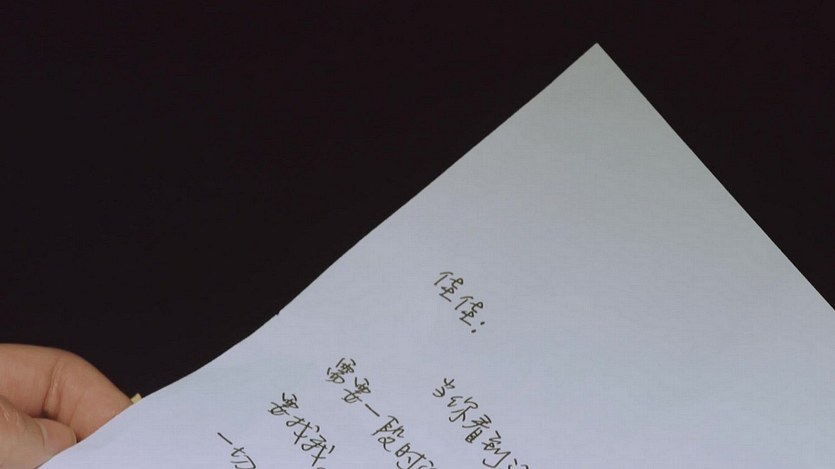 佳佳:
当你看到
需要一段时
要找我
一切